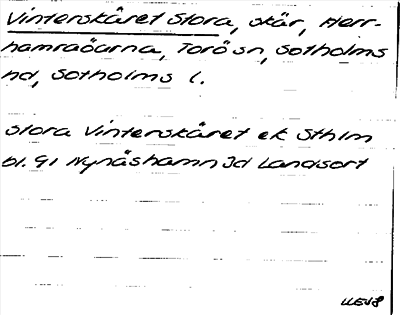 Vinterskåret Stora, skär, Herr-
hamraöarna, Torö sn, Sotholms
hd, Sotholms l.
Stora Vinterskåret ek Sthlm
bl. 91 Nynäshamn 3d Landsort